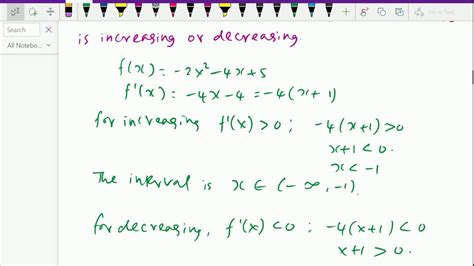 Search
All Notebo...
is increasing or decreasing.
f(x) = -2x²-4x+5
f'(x) = -4x-4 = -4(x+1)
for increasing f'(x)>0 ; -4(x+1)>0
x+1<0.
x<-1
The interval is x∈(-∞,-1).
for decreasing, f'(x)<0 ; -4(x+1)<0
x+1>0.